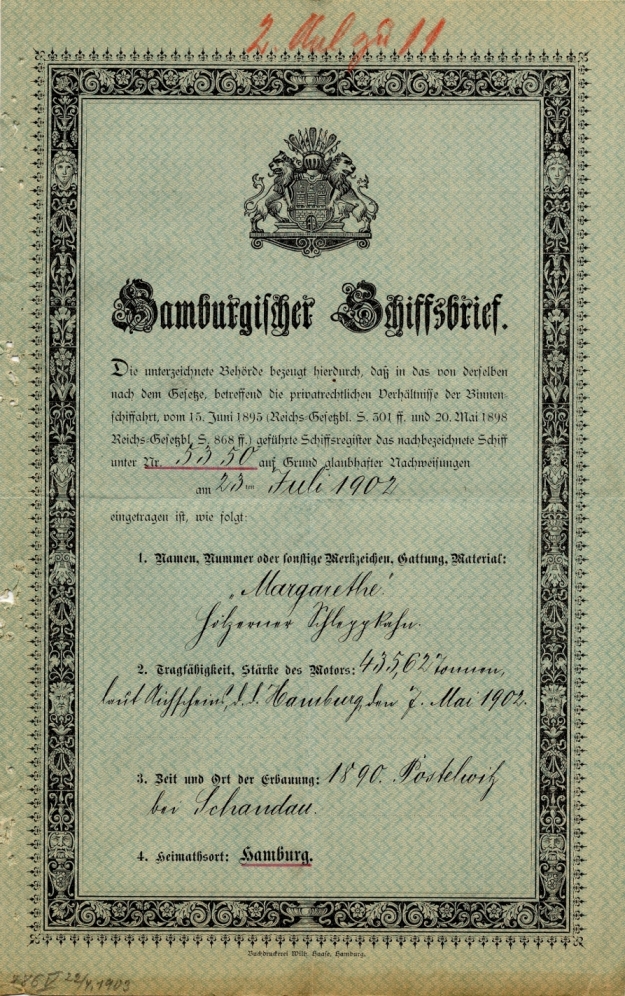 2. Anl zu 11
Hamburgischer Schiffsbrief.
Die unterzeichnete Behörde bezeugt hierdurch, daß in das von derselben
nach dem Gesetze, betreffend die privatrechtlichen Verhältnisse der Binnen-
schiffahrt, vom 15. Juni 1895 (Reichs-Gesetzbl. S. 301 ff. und 20. Mai 1898
Reichs-Gesetzbl. S. 868 ff.) geführte Schiffsregister das nachbezeichnete Schiff
unter Nr. 5350 auf Grund glaubhafter Nachweisungen
am 23ten Juli 1902
eingetragen ist, wie folgt:
1. Namen, Nummer oder sonstige Merkzeichen, Gattung, Material:
„Margarethe“.
hölzerner Schleppkahn.
2. Tragfähigkeit, Stärke des Motors: 435,62 Tonnen,
laut Aichscheins, d. d. Hamburg, den 7. Mai 1902.
3. Zeit und Ort der Erbauung: 1890. Postelwitz
bei Schandau.
4. Heimathsort: Hamburg.
Buchdruckerei Wilh. Haase, Hamburg.
22/4.1903